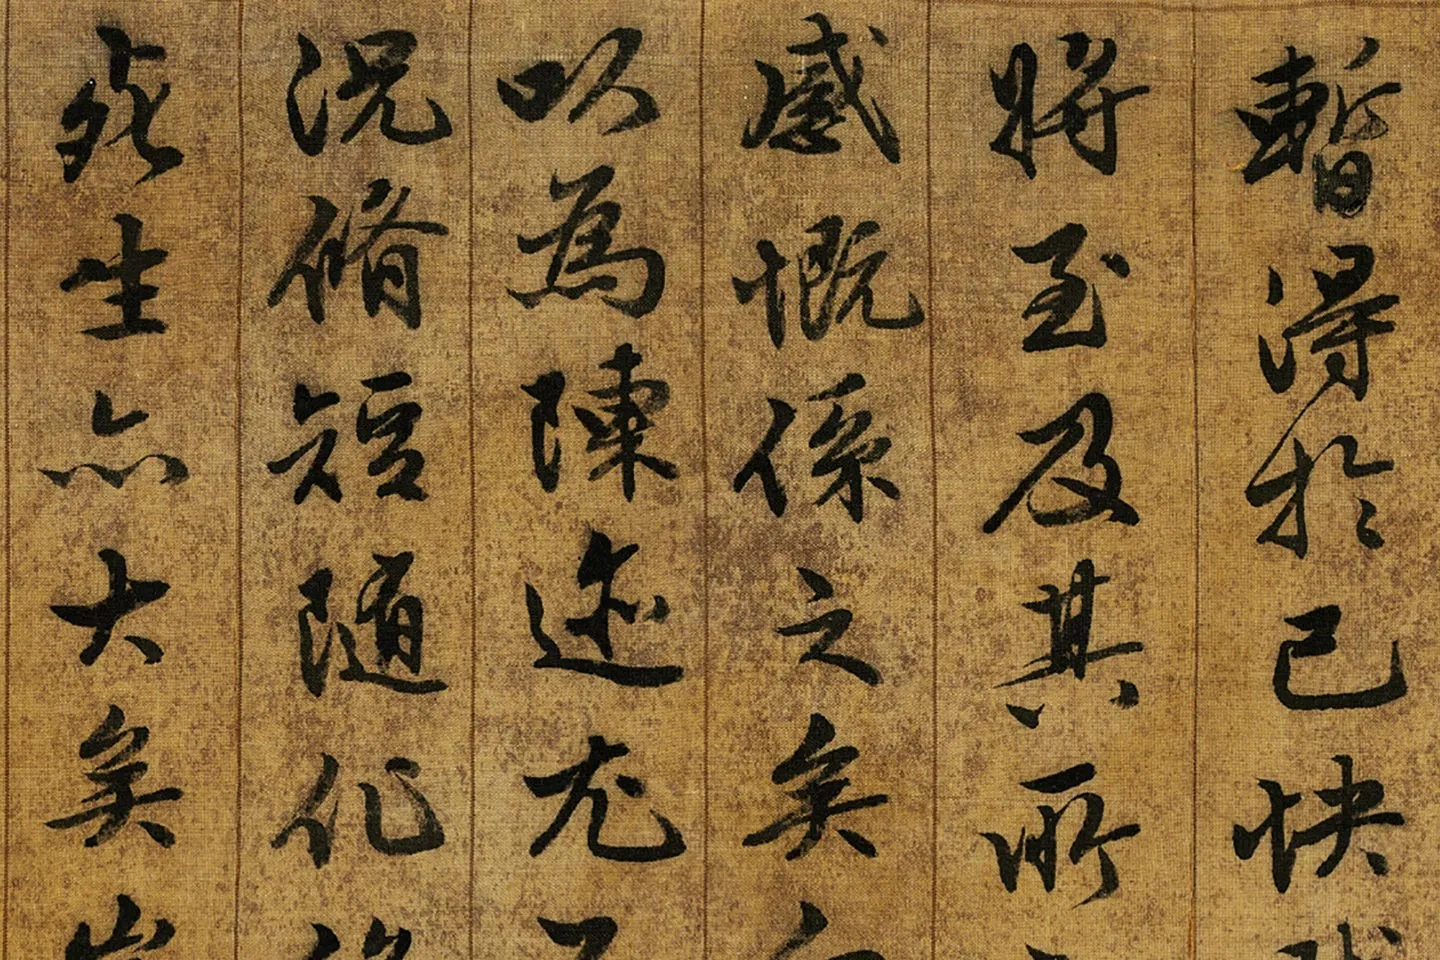 暫得於己快
將至及其所
感慨係之矣
以為陳迹尤
況脩短隨化
死生亦大矣